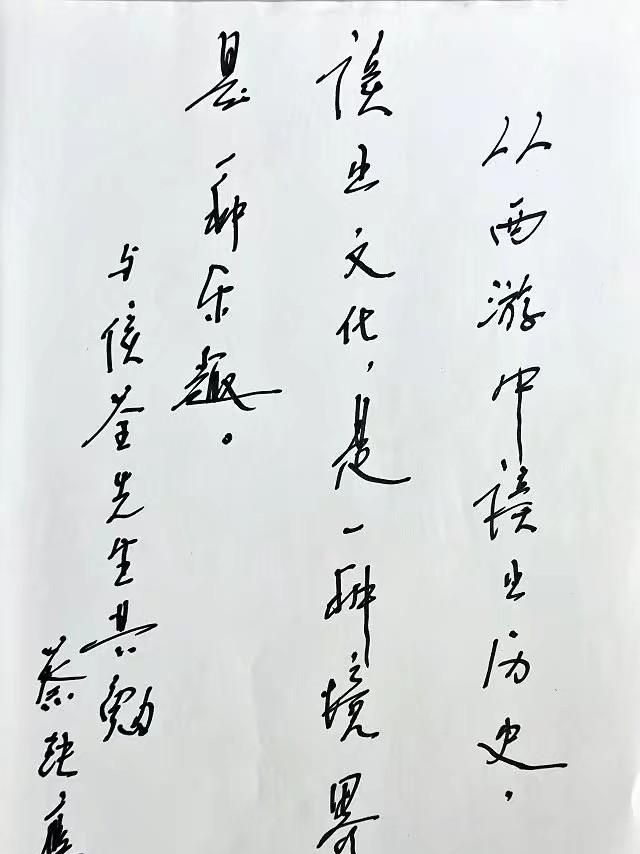 从西游中读出历史,
读出文化,是一种境界
是一种乐趣。
与侯荃先生共勉
蔡铁鹰